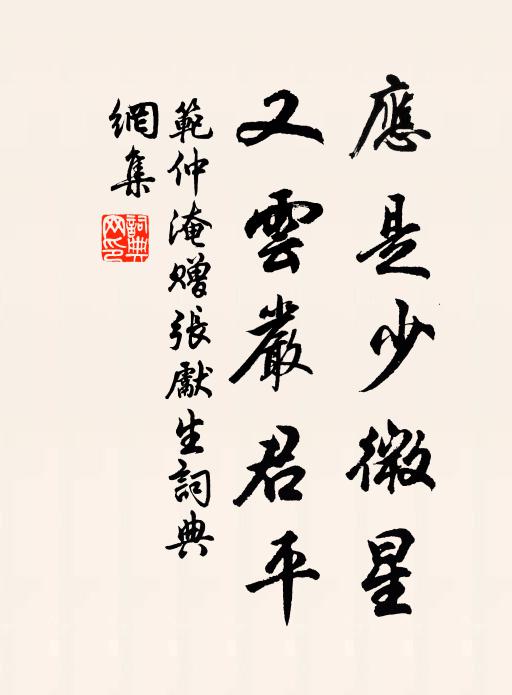 應是少微星
又雲嚴君平
範仲淹贈張獻生詞典
網集
詞典
网印